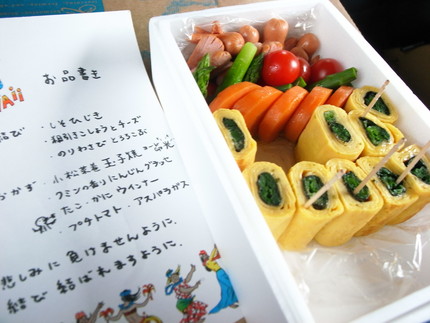 お品書き
結び ・しそひじき
・粗引きこしょうとチーズ
・のりわさびとろろこぶ
おかず ・小松菜巻玉子焼
・クミンの香りにんじんグラッセ
・たこ・かにウインナー
・プチトマト・アスパラガス
悲しみに負けませんように。
結び結ばれますように。